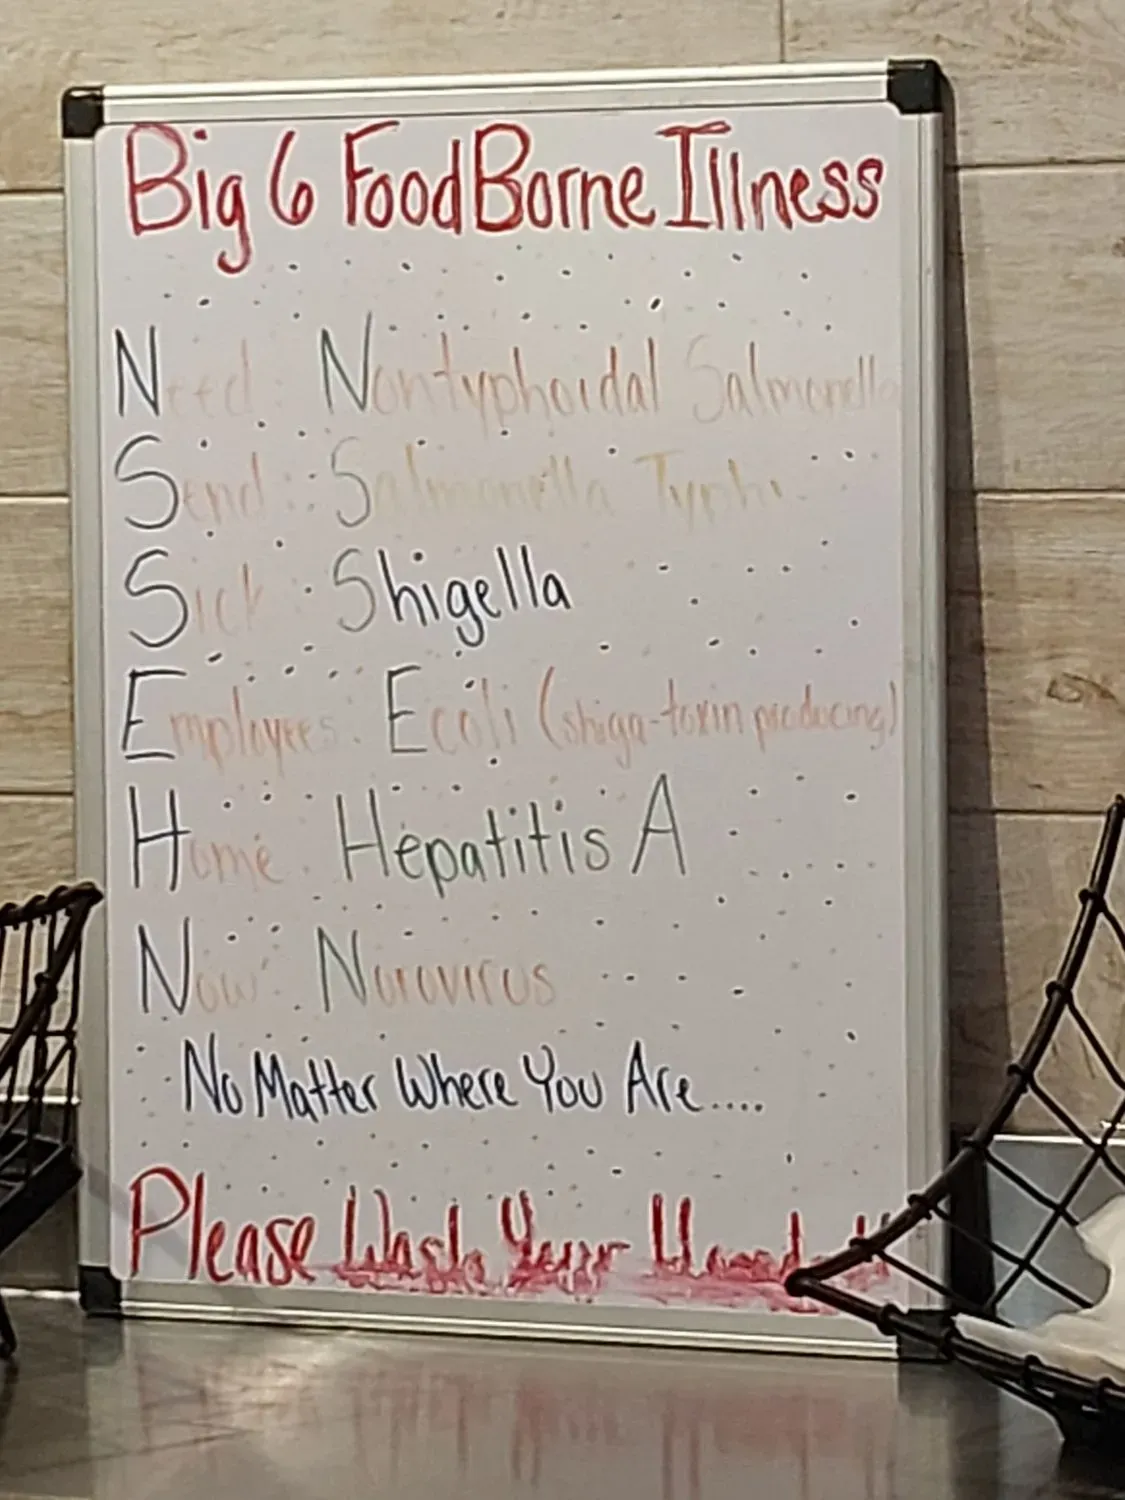 Big 6 FoodBorne Illness
Need: Nontyphoidal Salmonella
Send: Salmonella Typhi
Sick: Shigella
Employees: Ecoli (shiga-toxin producing)
Home: Hepatitis A
Now: Norovirus
No Matter Where You Are....
Please Wash Your Hands